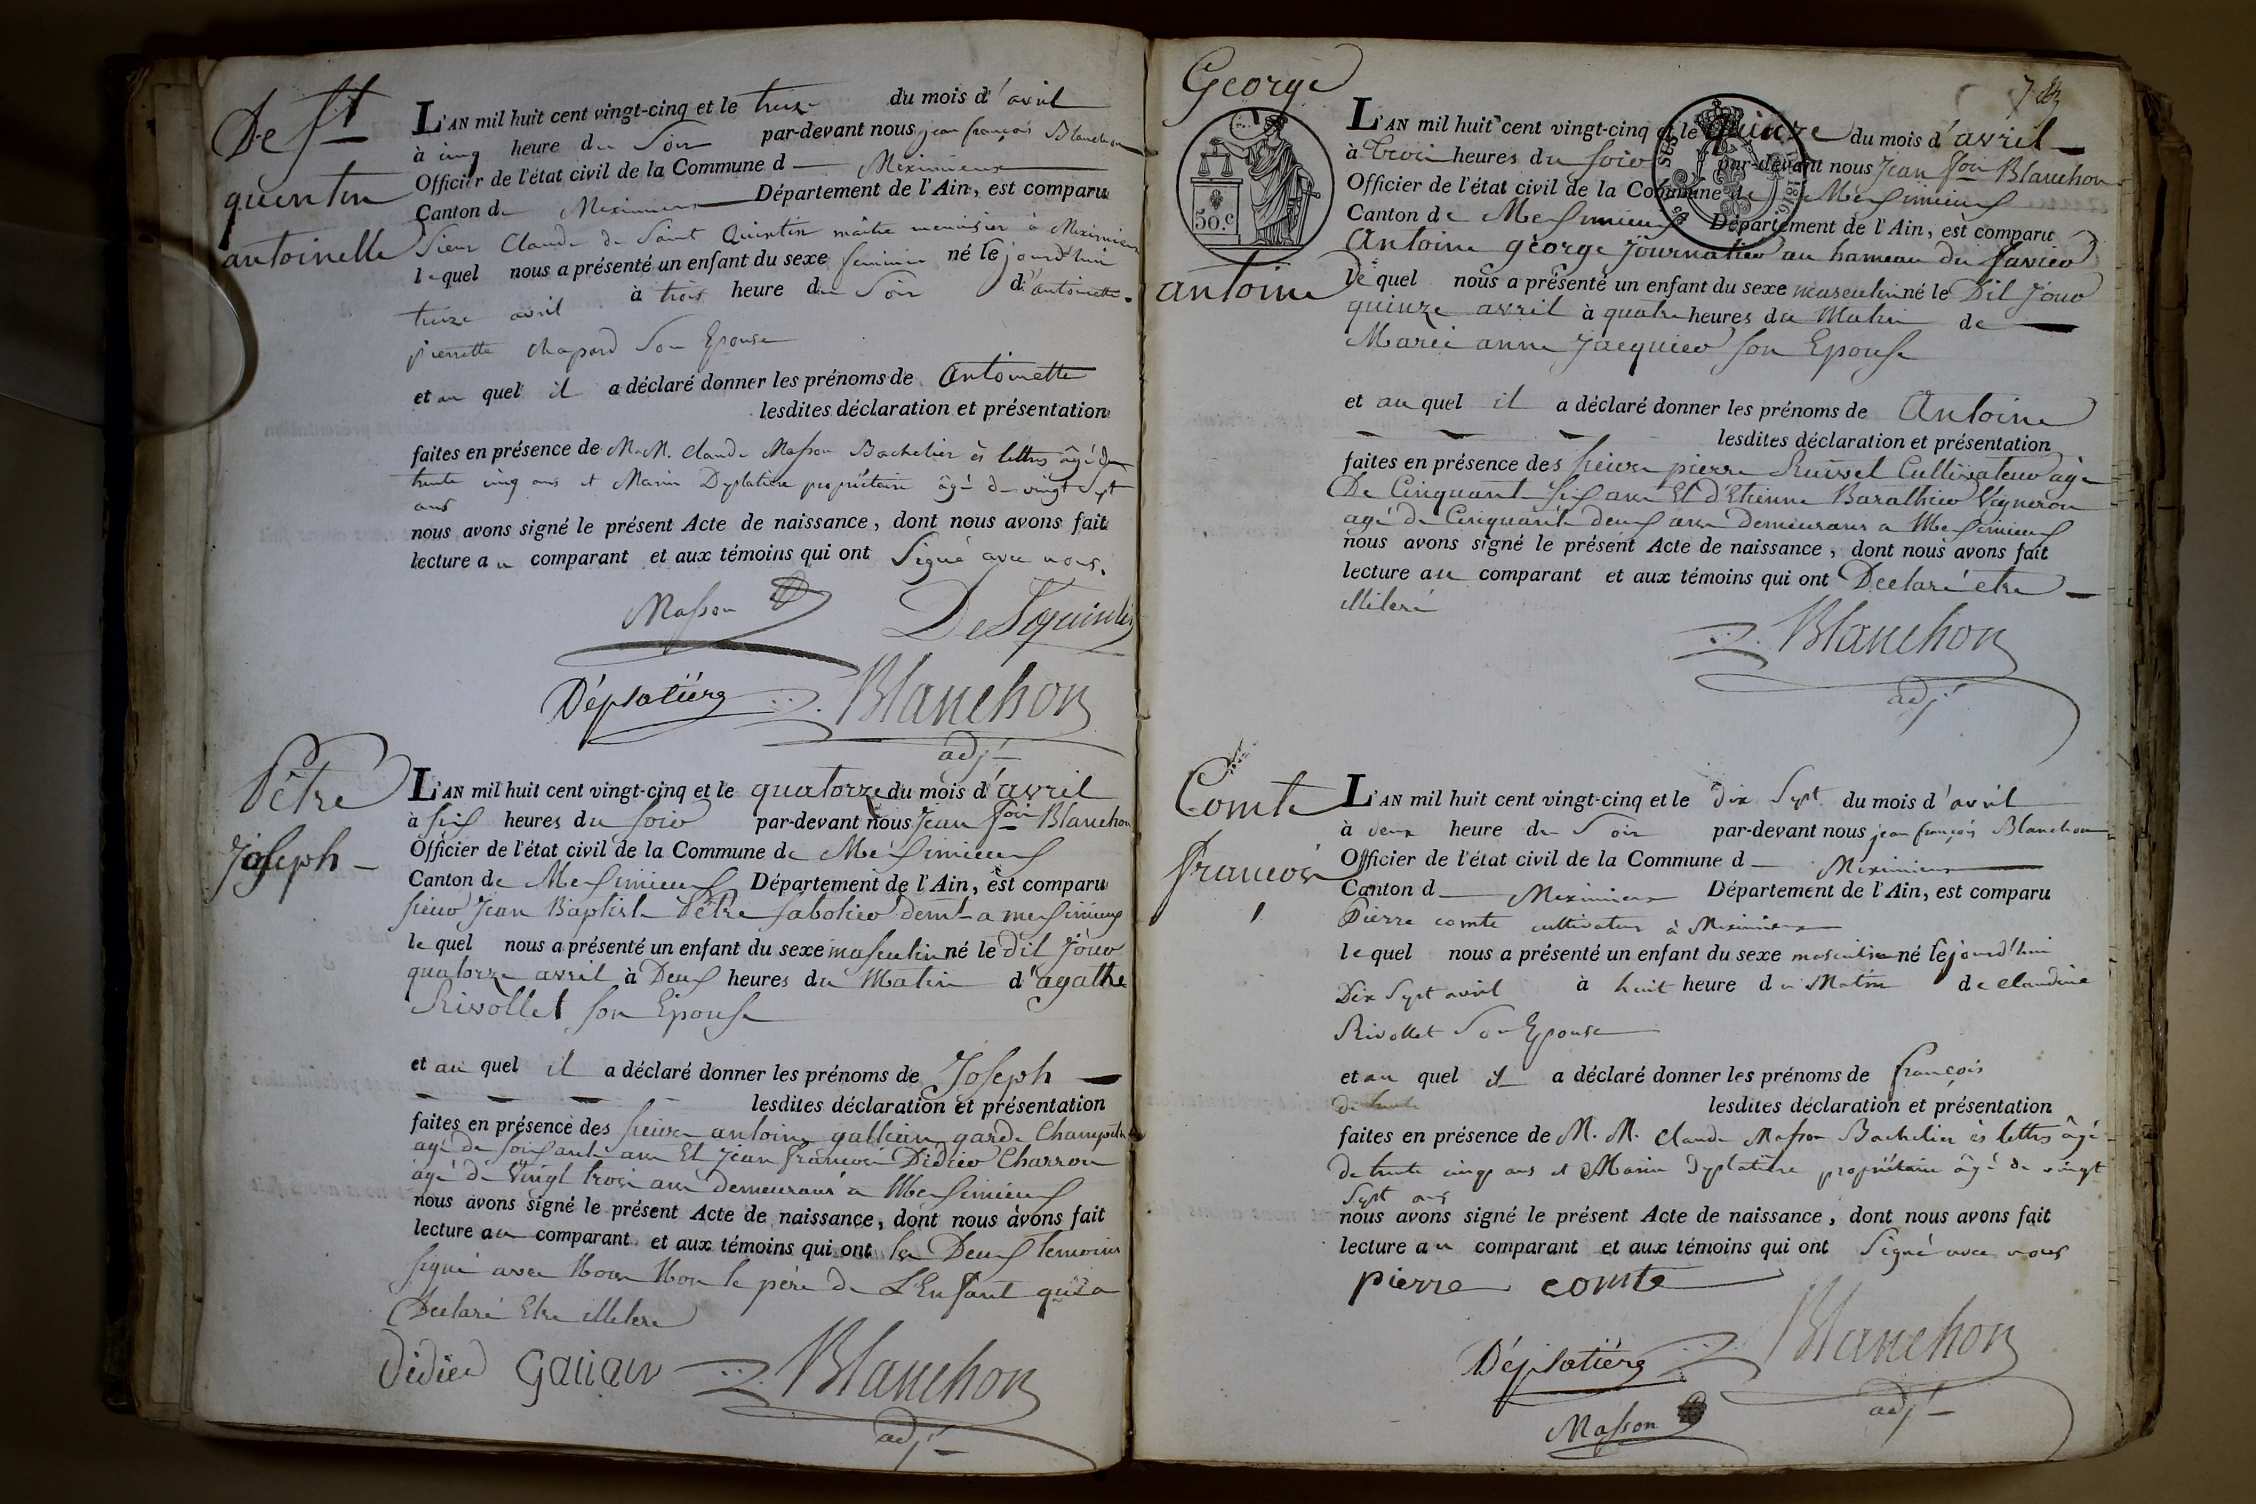 De St
quentin
antoinette
L'AN mil huit cent vingt-cinq et le treize du mois d'avril
à cinq heure du Soir par-devant nous jean françois Blanchon
Officier de l'état civil de la Commune d Meximieux
Canton de Meximieux Département de l'Ain, est comparu
Sieur Claude de Saint Quintin maître menuisier à Meximieux
le quel nous a présenté un enfant du sexe feminin né le jourd'hui
treize avril à trois heure du Soir d'antoinette
pierrette chapard Son Epouse
et au quel il a déclaré donner les prénoms de Antoinette
lesdites déclaration et présentation
faites en présence de M.M. Claude Masson Bachelier ès lettres âgé de
trente cinq ans et Marin Déplatière propriétaire âgé de vingt Sept
ans
nous avons signé le présent Acte de naissance, dont nous avons fait
lecture au comparant et aux témoins qui ont Signé avec nous.
Masson DeStquintin
Déplatière Blanchon
adjt
Pêtre
Joseph
L'AN mil huit cent vingt-cinq et le quatorze du mois d'avril
à six heures du soir par-devant nous Jean fcois Blanchon
Officier de l'état civil de la Commune de Meximieux
Canton de Meximieux Département de l'Ain, est comparu
sieur Jean Baptiste Pêtre sabotier demt a meximieux
le quel nous a présenté un enfant du sexe masculin né le dit Jour
quatorze avril à Deux heures du Matin d'agathe
Rivollet son Epouse
et au quel il a déclaré donner les prénoms de Joseph
lesdites déclaration et présentation
faites en présence des sieurs antoine gallian garde Champetre
agé de soixante ans Et Jean francois Didier Charron
agé de Vingt trois ans demeurans a Meximieux
nous avons signé le présent Acte de naissance, dont nous avons fait
lecture au comparant et aux témoins qui ont les Deux temoins
signé avec Nous Non le père de L'Enfant qui a
Declaré Etre illiteré
Didier Galian Blanchon
adjt
George
antoine
50.c
1816
L'AN mil huit cent vingt-cinq et le quinze du mois d'avril
à trois heures du soir par-devant nous Jean fcois Blanchon
Officier de l'état civil de la Commune de Meximieux
Canton de Meximieux Département de l'Ain, est comparu
Antoine george Journalier au hameau du
le quel nous a présenté un enfant du sexe masculin né le Dit Jour
quinze avril à quatre heures du Matin de
Marie anne Jacquier son Epouse
et au quel il a déclaré donner les prénoms de Antoine
lesdites déclaration et présentation
faites en présence des sieurs pierre Ruivet Cultivateur agé
De Cinquante six ans Et d'Etienne Barathier Vigneron
agé de Cinquante deux ans Demeurans a Meximieux
nous avons signé le présent Acte de naissance, dont nous avons fait
lecture au comparant et aux témoins qui ont Declaré etre
illiteré
Blanchon
adjt
Comte
francois
L'AN mil huit cent vingt-cinq et le dix Sept du mois d'avril
à deux heure du Soir par-devant nous jean françois Blanchon
Officier de l'état civil de la Commune d Meximieux
Canton d Meximieux Département de l'Ain, est comparu
Pierre comte cultivateur à Meximieux
le quel nous a présenté un enfant du sexe masculin né le jourd'hui
Dix Sept avril à huit heure du Matin de claudine
Rivollet Son Epouse
et au quel il a déclaré donner les prénoms de françois
lesdites déclaration et présentation
faites en présence de M. M. Claude Masson Bachelier ès lettres âgé
de trente cinq ans et Marin Déplatière propriétaire âgé de vingt
Sept ans
nous avons signé le présent Acte de naissance, dont nous avons fait
lecture au comparant et aux témoins qui ont Signé avec nous
pierre comte
Déplatière Blanchon
adjt
Masson